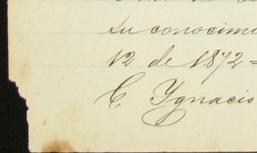 su conocimi
12 de 1872=
C Ygnacio